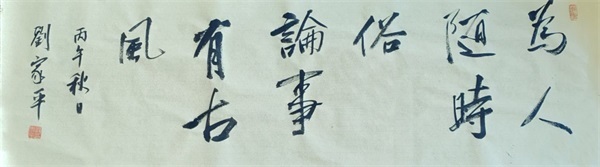 為人
隨時
俗
論事
有古
風
丙午秋日
劉家平